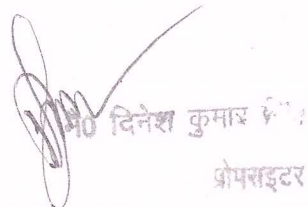 मै0 दिनेश कुमार
प्रोपराइटर